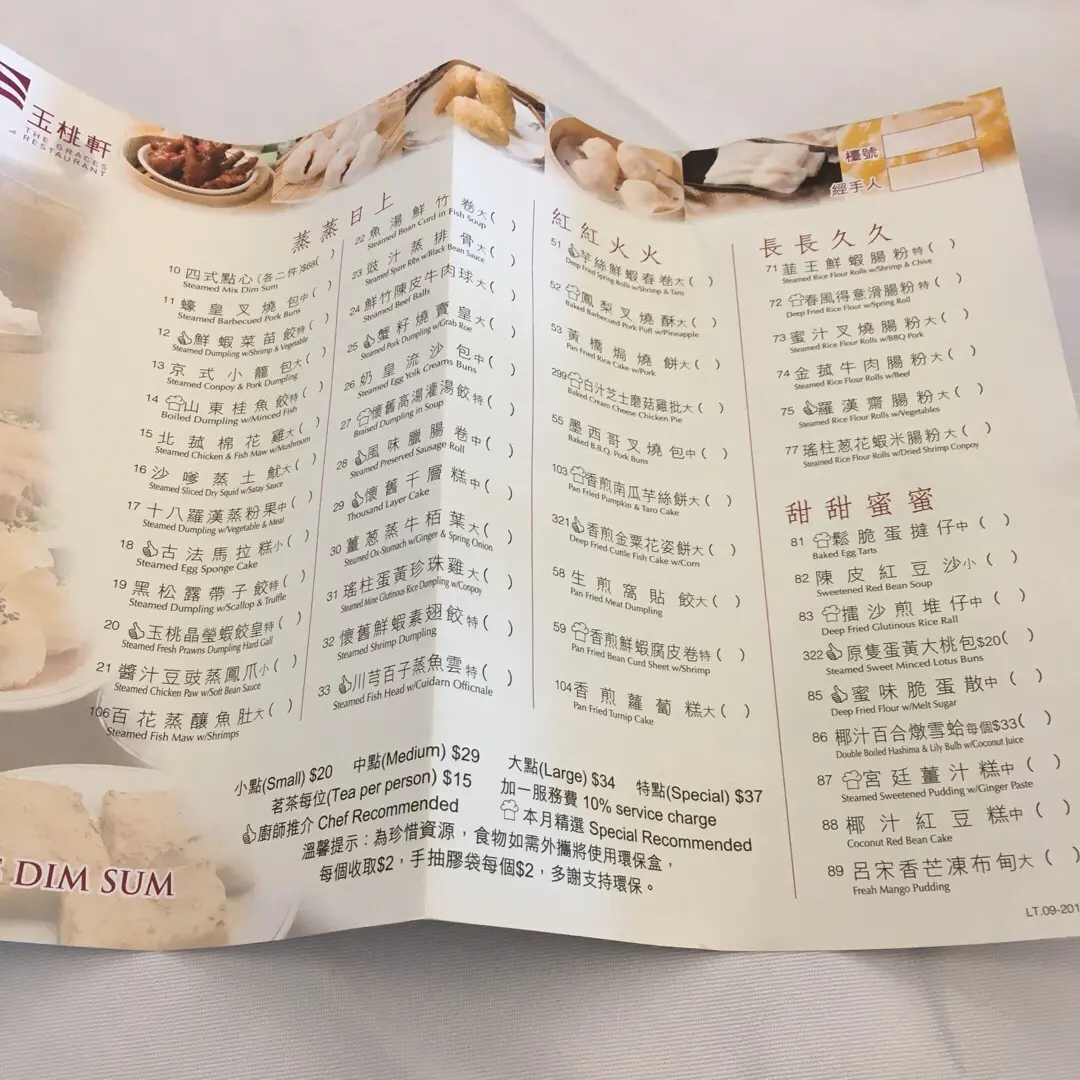 玉桃軒
THE GRACES
RESTAURANT
檯號
經手人
蒸蒸日上
10 四式點心(各二件)$68( )
Steamed Mix Dim Sum
11 蠔皇叉燒包中( )
Steamed Barbecued Pork Buns
12 鮮蝦菜苗餃特( )
Steamed Dumpling w/Shrimp & Vegetable
13 京式小籠包大( )
Steamed Conpoy & Pork Dumpling
14 山東桂魚餃特( )
Boiled Dumpling w/Minced Fish
15 北菰棉花雞大( )
Steamed Chicken & Fish Maw w/Mushroom
16 沙嗲蒸土魷大( )
Steamed Sliced Dry Squid w/Satay Sauce
17 十八羅漢蒸粉果中( )
Steamed Dumpling w/Vegetable & Meat
18 古法馬拉糕小( )
Steamed Egg Sponge Cake
19 黑松露帶子餃特( )
Steamed Dumpling w/Scallop & Truffle
20 玉桃晶瑩蝦餃皇特( )
Steamed Fresh Prawns Dumpling Hard Gall
21 醬汁豆豉蒸鳳爪小( )
Steamed Chicken Paw w/Soft Bean Sauce
106 百花蒸釀魚肚大( )
Steamed Fish Maw w/Shrimps
22 魚湯鮮竹卷大( )
Steamed Bean Curd in Fish Soup
23 豉汁蒸排骨大( )
Steamed Spure Ribs w/Black Bean Sauce
24 鮮竹陳皮牛肉球大( )
Steamed Beef Balls
25 蟹籽燒賣皇大( )
Steamed Pork Dumpling w/Grab Roe
26 奶皇流沙包中( )
Steamed Egg Yolk Creams Buns
27 懷舊高湯灌湯餃特( )
Braised Dumpling in Soup
28 風味臘腸卷中( )
Steamed Preserved Sausage Roll
29 懷舊千層糕中( )
Thousand Layer Cake
30 薑葱蒸牛栢葉大( )
Steamed Ox-Stomach w/Ginger & Spring Onion
31 瑤柱蛋黃珍珠雞大( )
Steamed Mine Glutinous Rice Dumpling w/Conpoy
32 懷舊鮮蝦素翅餃特( )
Steamed Shrimp Dumpling
33 川芎百子蒸魚雲特( )
Steamed Fish Head w/Cuidarn Officnale
紅紅火火
51 芋絲鮮蝦春卷大( )
Deep Fried Spring Rolls w/Shrimp & Taro
52 鳳梨叉燒酥大( )
Baked Barbecued Pork Puff w/Pineapple
53 黃橋焗燒餅大( )
Pan Fried Rice Cake w/Pork
299 白汁芝士磨菇雞批大( )
Baked Cream Cheese Chicken Pie
55 墨西哥叉燒包中( )
Baked B.B.Q. Pork Buns
103 香煎南瓜芋絲餅大( )
Pan Fried Pumpkin & Taro Cake
321 香煎金粟花姿餅大( )
Deep Fried Cuttle Fish Cake w/Corn
58 生煎窩貼餃大( )
Pan Fried Meat Dumpling
59 香煎鮮蝦腐皮卷特( )
Pan Fried Bean Curd Sheet w/Shrimp
104 香煎蘿蔔糕大( )
Pan Fried Turnip Cake
長長久久
71 韮王鮮蝦腸粉特( )
Steamed Rice Flour Rolls w/Shrimp & Chive
72 春風得意滑腸粉特( )
Deep Fried Rice Flour w/Spring Roll
73 蜜汁叉燒腸粉大( )
Steamed Rice Flour Rolls w/BBQ Pork
74 金菰牛肉腸粉大( )
Steamed Rice Flour Rolls w/Beef
75 羅漢齋腸粉大( )
Steamed Rice Flour Rolls w/Vegetables
77 瑤柱葱花蝦米腸粉大( )
Steamed Rice Flour Rolls w/Dried Shrimp Conpoy
甜甜蜜蜜
81 鬆脆蛋撻仔中( )
Baked Egg Tarts
82 陳皮紅豆沙小( )
Sweetened Red Bean Soup
83 擂沙煎堆仔中( )
Deep Fried Glutinous Rice Rall
322 原隻蛋黃大桃包$20( )
Steamed Sweet Minced Lotus Buns
85 蜜味脆蛋散中( )
Deep Fried Flour w/Melt Sugar
86 椰汁百合燉雪蛤每個$33( )
Double Boiled Hashima & Lily Bulb w/Coconut Juice
87 宮廷薑汁糕中( )
Steamed Sweetened Pudding w/Ginger Paste
88 椰汁紅豆糕中( )
Coconut Red Bean Cake
89 呂宋香芒凍布甸大( )
Freah Mango Pudding
小點(Small) $20 中點(Medium) $29 大點(Large) $34 特點(Special) $37
茗茶每位(Tea per person) $15 加一服務費 10% service charge
廚師推介 Chef Recommended 本月精選 Special Recommended
溫馨提示：為珍惜資源，食物如需外攜將使用環保盒，
每個收取$2，手抽膠袋每個$2，多謝支持環保。
DIM SUM
LT.09-201